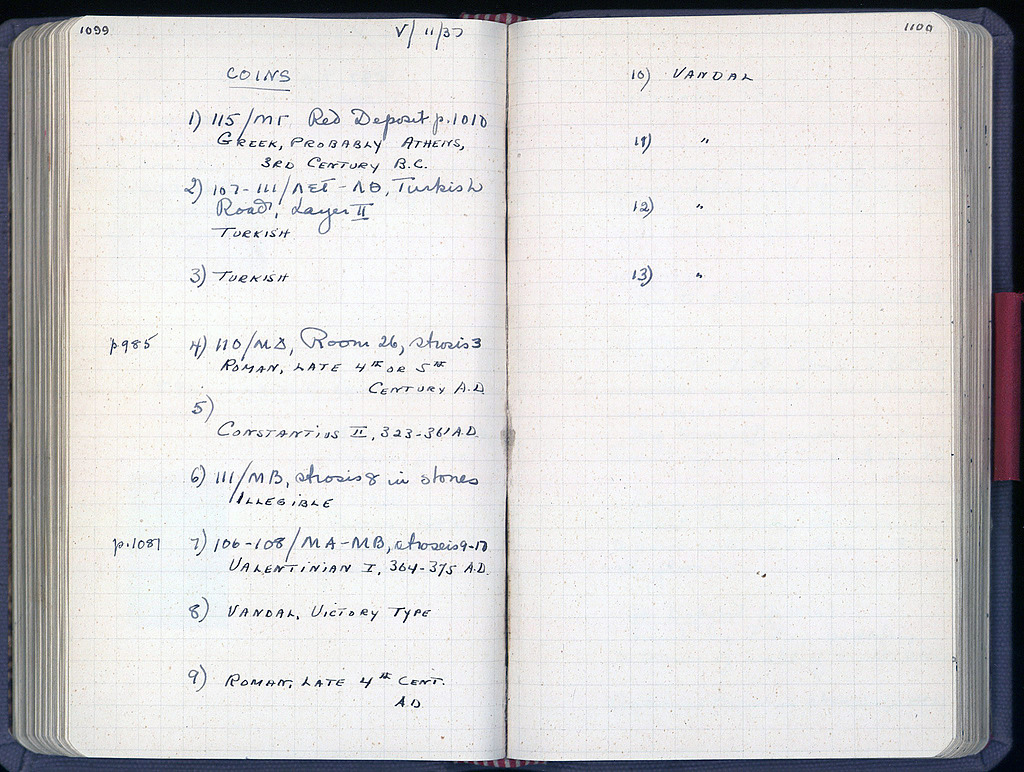 1099
V/11/37
COINS
1) 115/ΜΓ Red Deposit p.1010
GREEK, PROBABLY ATHENS,
3RD CENTURY B.C.
2) 107-111/ - ΛΘ, Turkish
Road, Layer II
TURKISH
3) TURKISH
p985 4) 110/ΜΔ, Room 26, strosis 3
ROMAN, LATE 4TH OR 5TH
CENTURY A.D.
5)
CONSTANTIUS II, 323-361 A.D.
6) 111/MB, strosis 8 in stones
ILLEGIBLE
p.1081 7) 106-108/MA-MB, stroseis 9-10
VALENTINIAN I, 364-375 A.D.
8) VANDAL, VICTORY TYPE
9) ROMAN, LATE 4TH CENT.
AD
1100
10) VANDAL
11) "
12) "
13) "